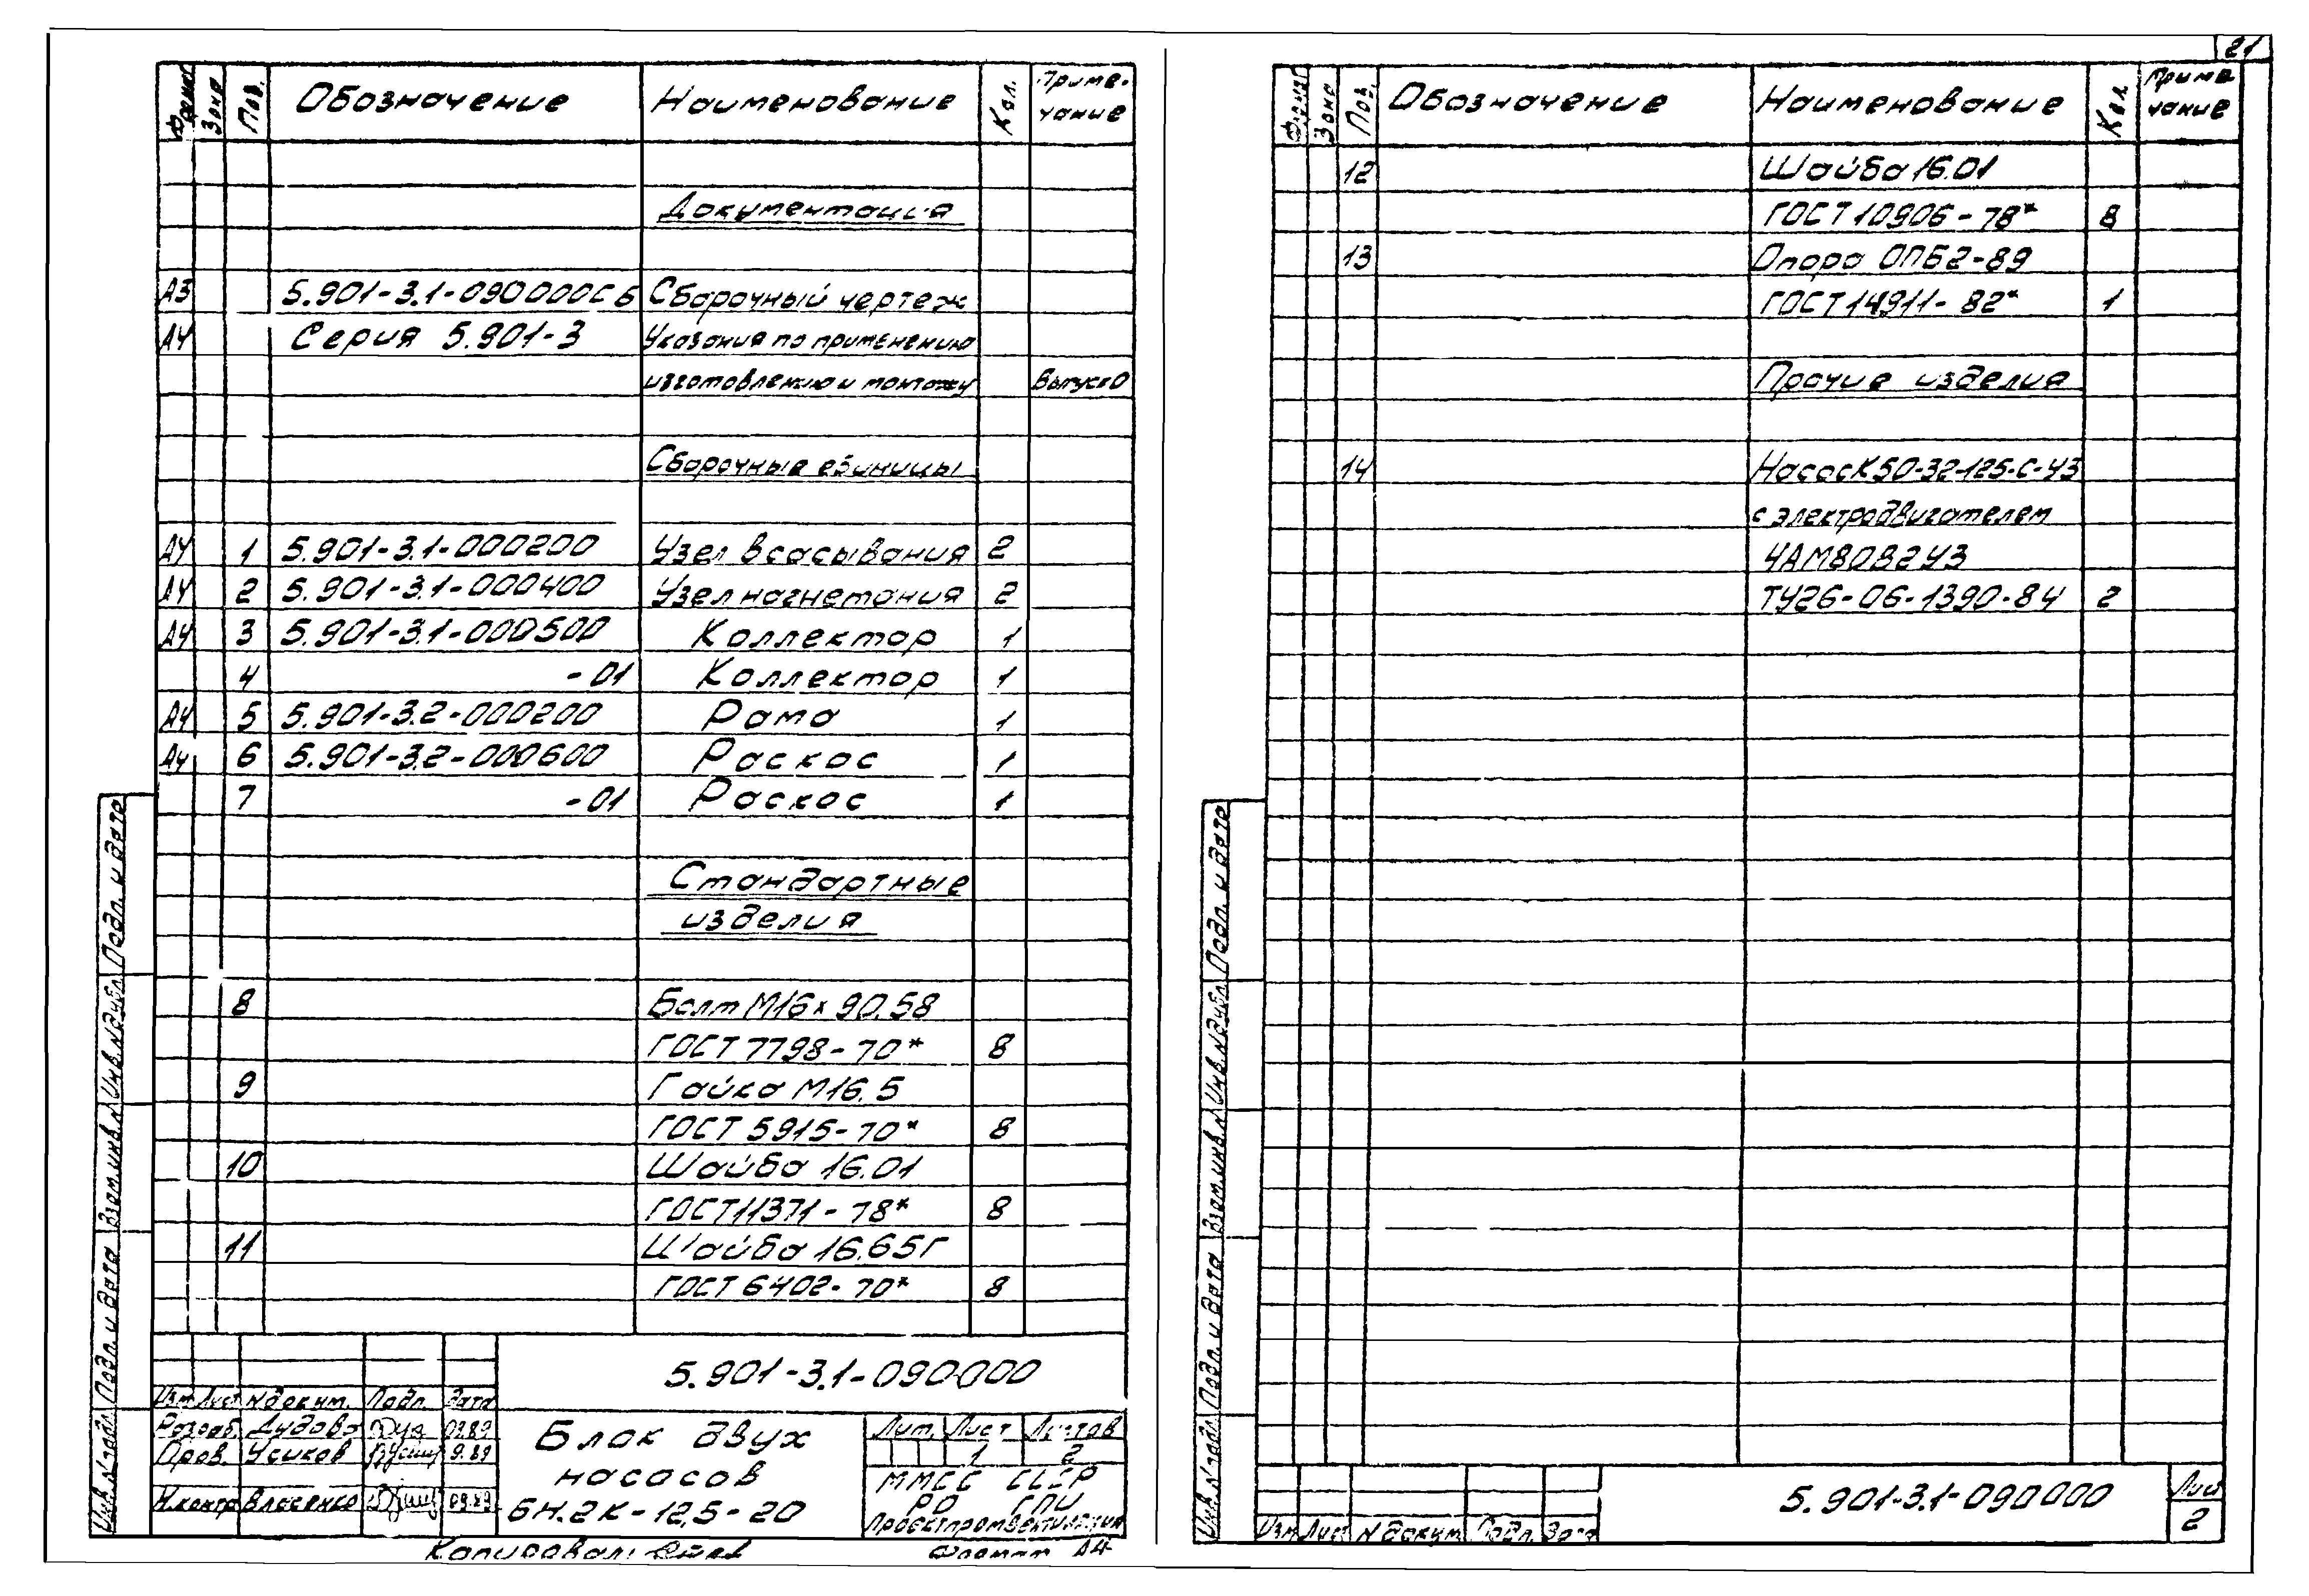 21
Формат Зона Поз. Обозначение Наименование Кол. Приме-
чание
Документация
А3 5.901-3.1-090000СБ Сборочный чертеж
А4 Серия 5.901-3 Указания по применению
изготовлению и монтажу Выпуск 0
Сборочные единицы
А4 1 5.901-3.1-000200 Узел всасывания 2
А4 2 5.901-3.1-000400 Узел нагнетания 2
А4 3 5.901-3.1-000500 Коллектор 1
4 -01 Коллектор 1
А4 5 5.901-3.2-000200 Рама 1
А4 6 5.901-3.2-000600 Раскос 1
7 -01 Раскос 1
Стандартные
изделия
8 Болт М16х90.58
ГОСТ 7798-70* 8
9 Гайка М16.5
ГОСТ 5915-70* 8
10 Шайба 16.01
ГОСТ 11371-78* 8
11 Шайба 16.65Г
ГОСТ 6402-70* 8
Подп. и дата
Инв.№дубл.
Взам.инв.№
Подп. и дата
Инв.№подл.
5.901-3.1-090000
Изм. Лист №докум. Подп. Дата
Разраб. Дудова 09.89
Пров. Усиков 9.89
Н.контр. Власенко 09.89
Блок двух
насосов
БН.2К-12,5-20
Лит. Лист Листов
1 2
ММСС СССР
РО ГПИ
Проектпромвентиляция
Копировал: Формат А4
Формат Зона Поз. Обозначение Наименование Кол. Приме
чание
12 Шайба 16.01
ГОСТ 10906-78* 8
13 Опора ОПБ2-89
ГОСТ 14911-82* 1
Прочие изделия
14 Насос К50-32-125-С-У3
с электродвигателем
4АМ80В2У3
ТУ26-06-1390-84 2
Подп. и дата
Инв.№дубл.
Взам.инв.№
Подп. и дата
Инв.№подл.
Изм Лист №докум. Подп. Дата
5.901-3.1-090000
Лист
2